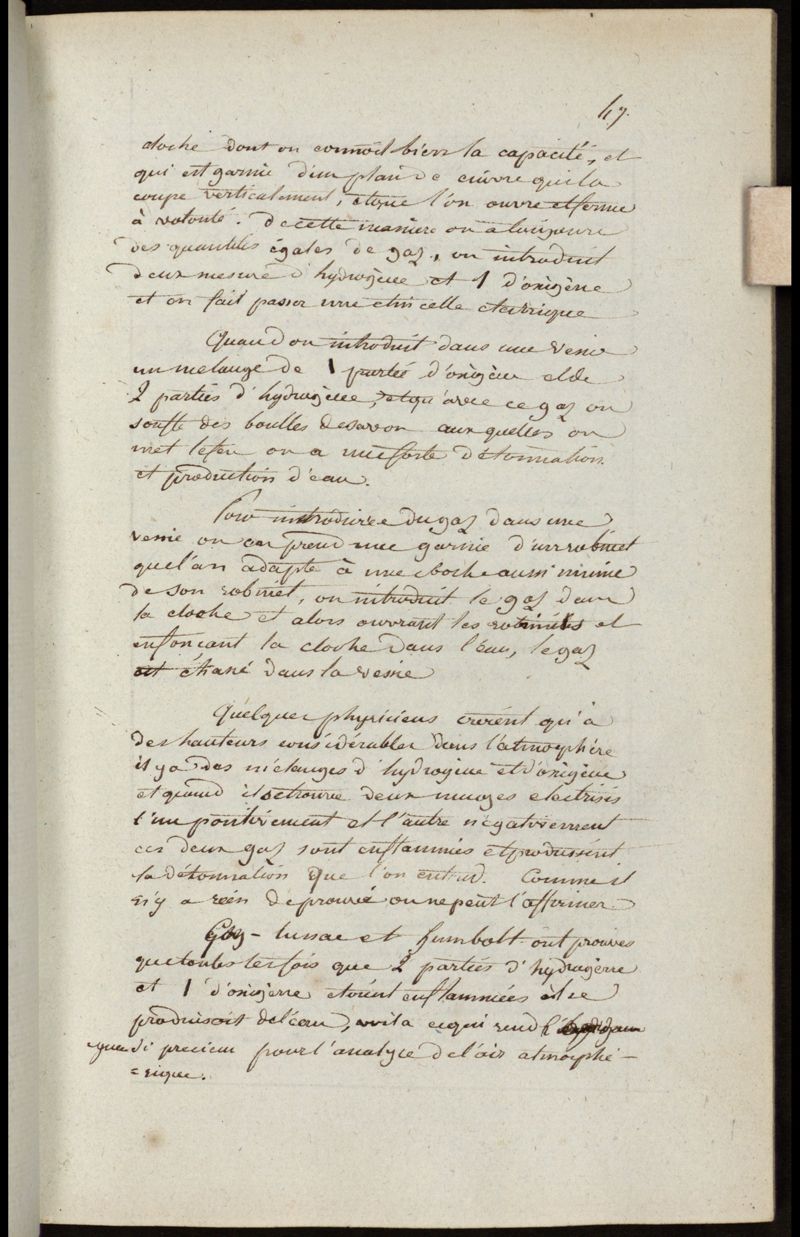 47.
cloche dont on connoit bien la capacité, et
qui est garnie d'un plan de cuivre qui la
coupe verticalement, et que l'on ouvre et ferme
à volonté. de cette maniere on a toujours
des quantités égales de gaz, on introduit
deux mesure d'hydrogène et 1 d'oxigène
et on fait passer une etincelle electrique
Quand on introduit dans une vessie
un melange de 1 partie d'oxigène et de
2 parties d'hydrogène, et qu'avec ce gaz on
souffle des boulles de savon aux quelles on
met le feu on a une forte détonnation
et production d'eau.
Pour introduire du gaz dans une
vessie on en prend une garnie d'un robinet
que l'on adapte à une cloche aussi munie
de son robinet, on introduit le gaz dans
la cloche et alors ouvrant les robinets et
enfonçant la cloche dans l'eau, le gaz
est chassé dans la vessie
Quelques physiciens croient qu'à
des hauteurs considérables dans l'atmosphère
il y a des mélanges d'hydrogène et d'oxigène
et quand il se trouve deux nuages electrisés
l'un positivement et l'autre négativement
ces deux gaz sont enflammés et produissent
la détonnation que l'on entend. Comme il
n'y a rien de prouvé on ne peut l'affirmer
Gay-lussac et humbolt ont prouvés
que toutes les fois que 2 parties d'hydrogène
et 1 d'oxigène etoient enflammées il se
produisoit de l'eau, voila ce qui rend
si precieux pour l'analyse de l'air atmosphé-
=rique.